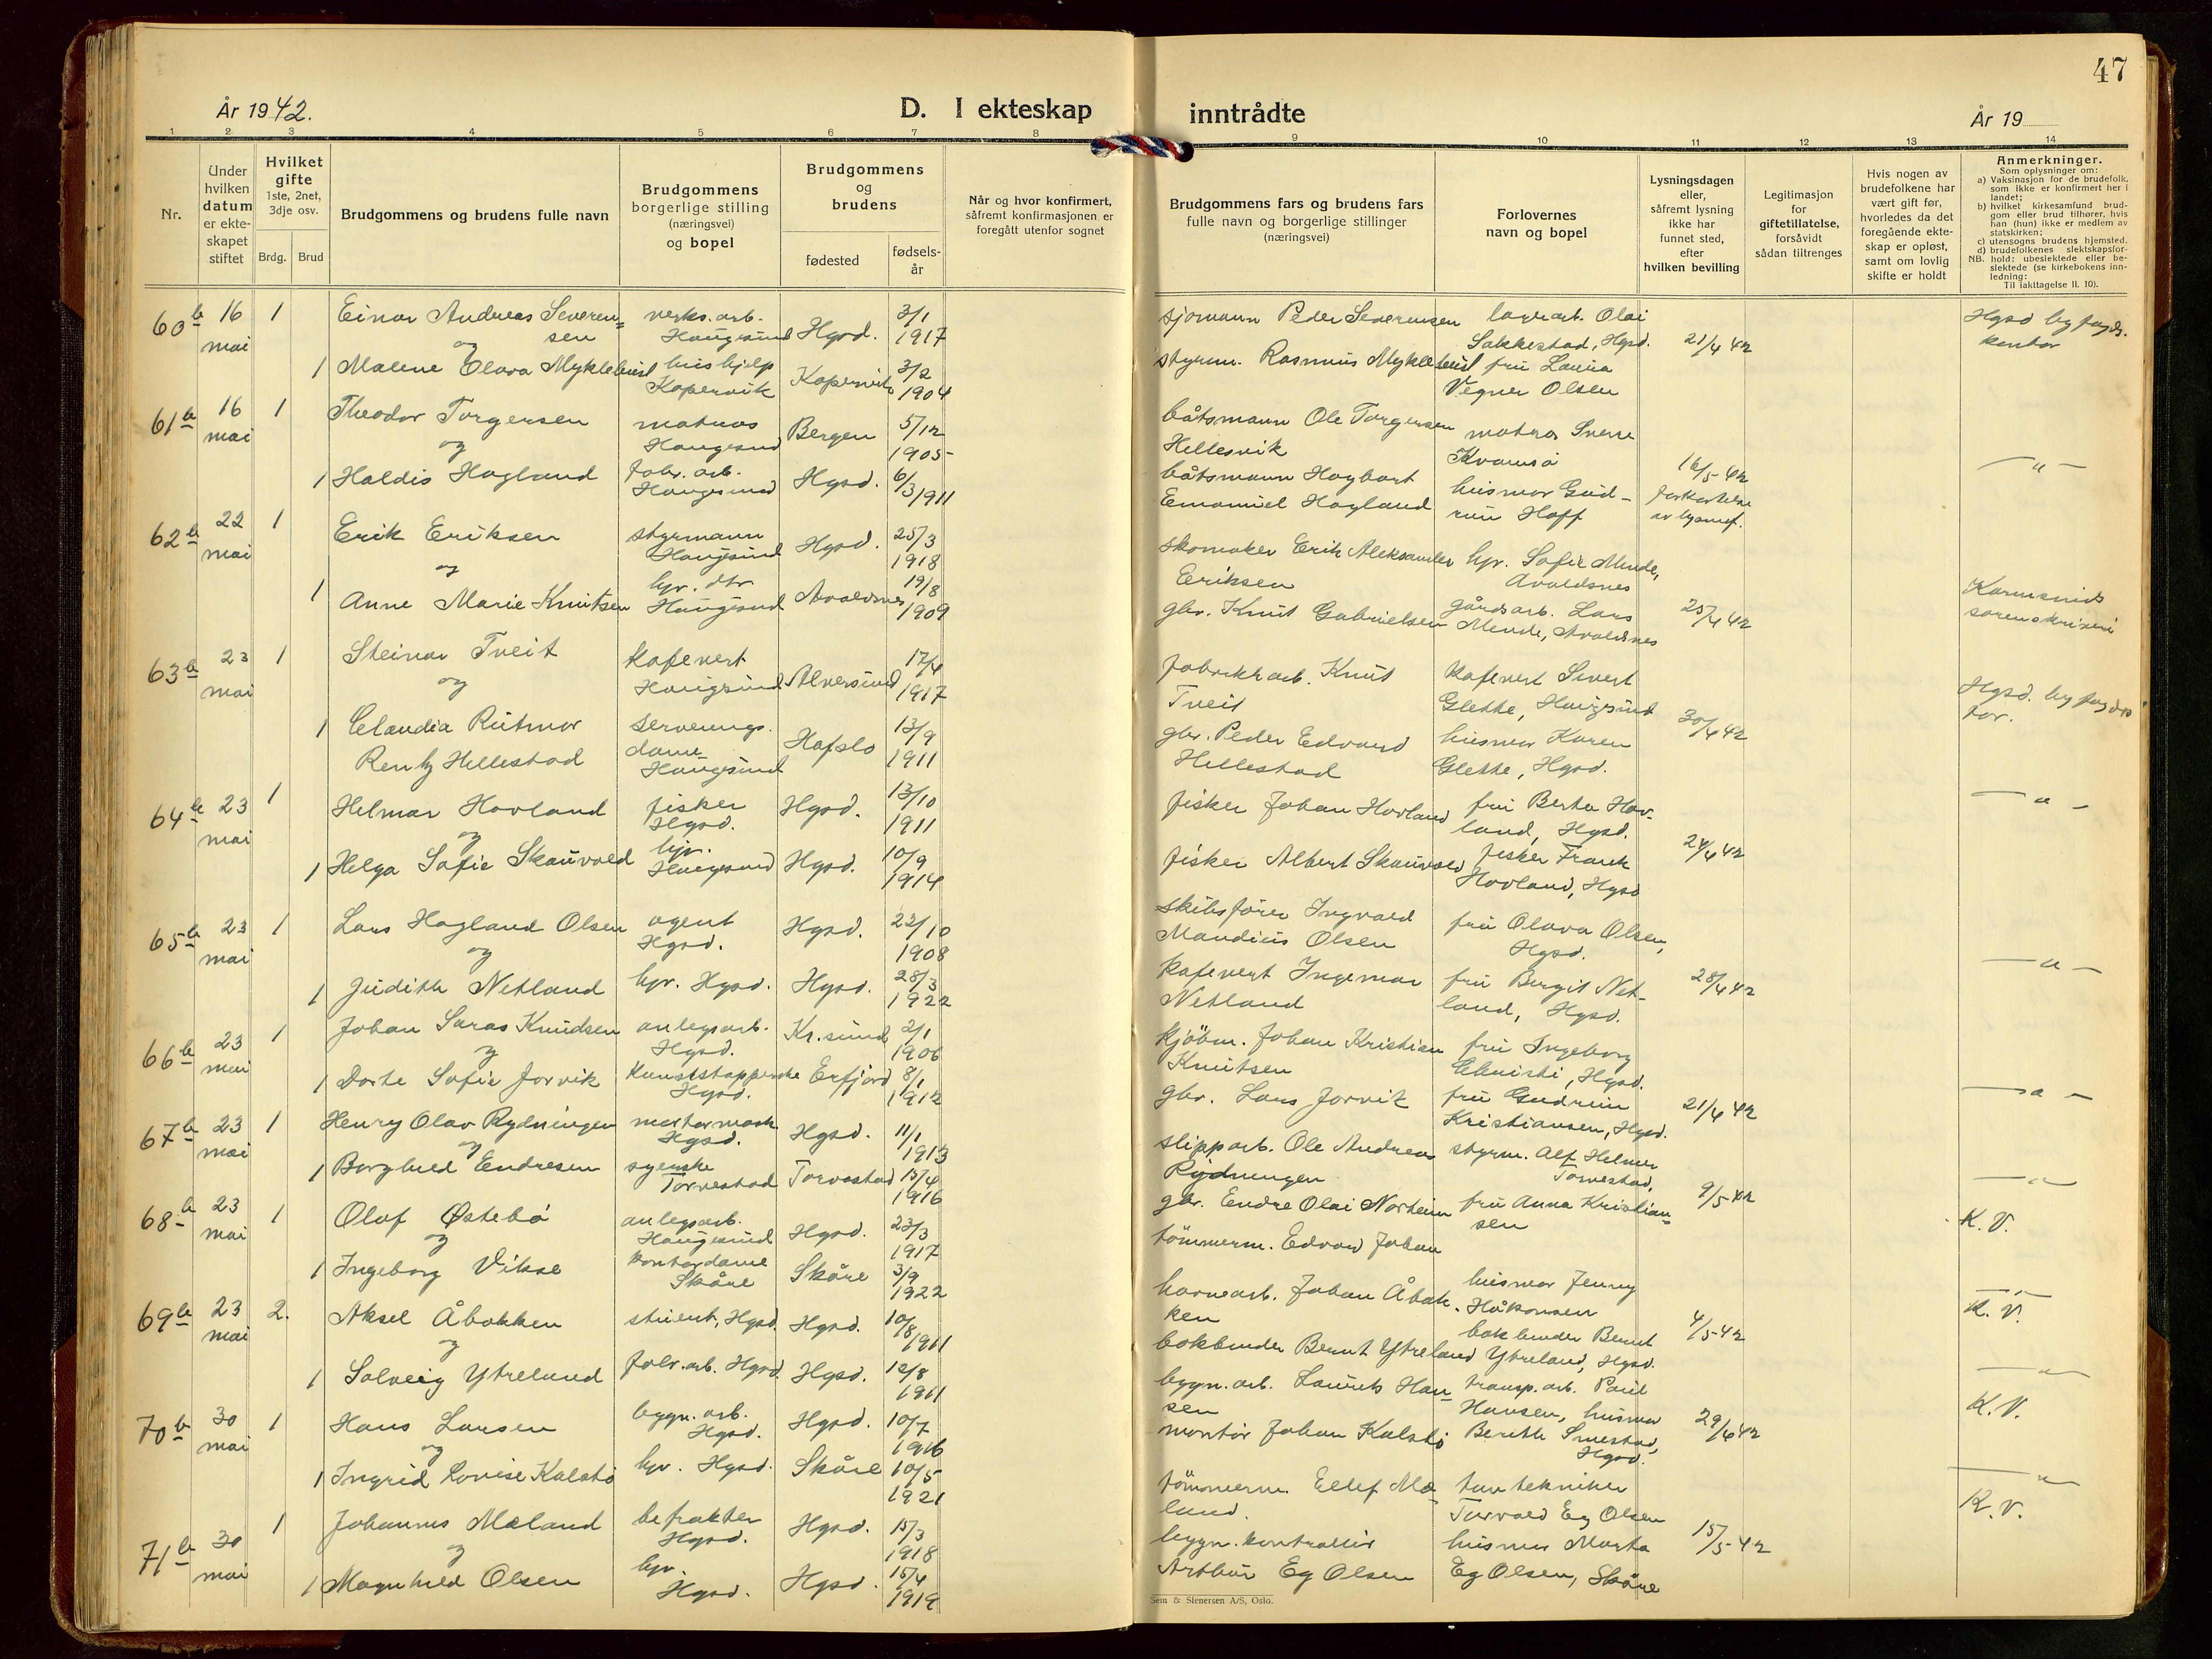 47
År 1942.
D. I ekteskap
inntrådte
År 19
1 2 3 4 5 6 7 8
9 10 11 12 13 14
Nr.
Under
hvilken
datum
er ekte-
skapet
stiftet
Hvilket
gifte
1ste, 2net,
3dje osv.
Brdg.
Brud
Brudgommens og brudens fulle navn
Brudgommens
borgerlige stilling
(næringsvei)
og bopel
Brudgommens
og
brudens
fødested
fødsels-
år
Når og hvor konfirmert,
såfremt konfirmasjonen er
foregått utenfor sognet
Brudgommens fars og brudens fars
fulle navn og borgerlige stillinger
(næringsvei)
Forlovernes
navn og bopel
Lysningsdagen
eller,
såfremt lysning
ikke har
funnet sted,
efter
hvilken bevilling
Legitimasjon
for
giftetillatelse,
forsåvidt
sådan tiltrenges
Hvis nogen av
brudefolkene har
vært gift før,
hvorledes da det
foregående ekte-
skap er opløst,
samt om lovlig
skifte er holdt
Anmerkninger.
Som oplysninger om:
a) Vaksinasjon for de brudefolk,
som ikke er konfirmert her i
landet;
b) hvilket kirkesamfund brud-
gom eller brud tilhører, hvis
han (hun) ikke er medlem av
statskirken;
c) utensogns brudens hjemsted.
d) brudefolkenes slektskapsfor-
NB. hold: ubeslektede eller be-
slektede (se kirkebokens inn-
ledning:
Til iakttagelse II. 10).
60b 16 mai 1 Einar Andreas Severen=
sen
og
verks.arb.
Haugesund
Hgsd. 3/1 1917
sjömann Peder Severensen
lagerarb. Olai
Sakkestad, Hgsd.
21/4 42
Hgsd byfogds.
kontor
1 Malene Olava Myklebust
hushjelp
Kopervik
Kopervik 3/2 1904
styrm. Rasmus Myklebust
fru Laura
Vegner Olsen
61b 16 mai 1 Theodor Torgersen
og
matros
Haugesund
Bergen 5/12 1905
båtsmann Ole Torgersen
Hellesvik
matros Sverre
Kvamsö
16/5-42
— " —
1 Haldis Hagland
fabr. arb.
Haugesund
Hgsd. 6/3 1911
båtsmann Hagbart
Emanuel Hagland
husmor Gud-
run Hoff
62b 22 mai 1 Erik Eriksen
og
styrmann
Haugesund
Hgsd. 25/3 1918
skomaker Erik Aleksander
Eriksen
hr. Sofie Mende,
Avaldsnes
25/4 42
Karmsunds
sorenskriveri
1 Anne Marie Knutsen
hr. dtr.
Haugesund
Avaldsnes 19/8 1909
gbr. Knut Gabrielsen
gårdsarb. Lars
Mende, Avaldsnes
63b 23 mai 1 Steinar Tveit
og
kafevert
Haugesund
Alversund 17/4 1917
fabrikkarb. Knut
Tveit
kafevert Sivert
Glette, Haugesund
30/4 42
Hgsd. byfogds
tor.
1 Claudia Rutmor
Rentz Hellestad
serverings.
dame
Haugesund
Hafslo 13/9 1911
gbr. Peder Edvard
Hellestad
husmor Karen
Glette, Hgsd.
64b 23 mai 1 Helmar Hovland
og
fisker
Hgsd.
Hgsd. 13/10 1911
fisker Johan Hovland
fru Berta Hov-
land, Hgsd.
24/4 42
— " —
1 Helga Sofie Skauvold
hjv.
Haugesund
Hgsd. 10/9 1914
fisker Albert Skauvold
fisker Frank
Hovland, Hgsd
65b 23 mai 1 Lars Hagland Olsen
og
agent
Hgsd.
Hgsd. 22/10 1908
skibsförer Ingvald
Mandius Olsen
fru Olava Olsen,
Hgsd.
28/4 42
— " —
1 Judith Netland
hjv. Hgsd.
Hgsd. 28/3 1922
kafevert Ingemar
Netland
fru Bergit Net-
land, Hgsd.
66b 23 mai 1 Johan Saras Knudsen
og
anlegsarb.
Hgsd.
Kr.sund 2/1 1906
kjöbm. Johan Kristian
Knutsen
fru Ingeborg
, Hgsd.
21/4 42
— " —
1 Dorte Sofie Jorvik
kunststopperske
Hgsd.
Erfjord 8/1 1912
gbr. Lars Jorvik
fru Gudrun
Kristiansen, Hgsd.
67b 23 mai 1 Henry Olav Rydningen
og
motormask
Hgsd.
Hgsd. 11/1 1913
slipparb. Ole Andreas
Rydningen
styrm. Alf Helmer
Torvestad,
9/5-42
— " —
1 Borghild Endresen
syerske
Torvestad
Torvestad 15/4 1916
gbr. Endre Olai Norheim
fru Anna Kristian=
sen
68b 23 mai 1 Olaf Østebö
og
anlegsarb.
Haugesund
Hgsd. 23/3 1917
tömmerm. Edvard Johan
K.V.
1 Ingeborg Vikse
kontordame
Skåre
Skåre 3/9 1922
69b 23 mai 2. Aksel Åbakken
og
stuert, Hgsd.
Hgsd. 10/8 1911
havnearb. Johan Åbak-
ken
husmor Jenny
Håkonsen
4/5-42
— " —
K.V.
1 Solveig Ytreland
fabr.arb. Hgsd.
Hgsd. 12/8 1911
bokbinder Bernt Ytreland
bokbinder Bernt
Ytreland, Hgsd.
70b 30 mai 1 Hans Larsen
og
bygn. arb.
Hgsd.
Hgsd. 10/7 1916
bygn. arb. Laurits Han-
sen
transp.arb. Paul
Hansen, husmor
29/4 42
— " —
K.V.
1 Ingrid Lovise Kalstö
hjv. Hgsd.
Skåre 10/5 1921
montör Johan Kalstö
Bereth Smestad,
Hgsd.
71b 30 mai 1 Johannes Mæland
og
befrakter
Hgsd.
Hgsd. 15/3 1918
tömmerm. Ellef Mæ-
land.
tanntekniker
Torvald Eg Olsen
15/5-42
— " —
K.V.
1 Magnhild Olsen
hjv.
Hgsd.
Hgsd. 15/4 1919
bygn. kontrollör
Arthur Eg Olsen
husmor Marta
Eg Olsen, Skåre
Sem & Stenersen A/S, Oslo.